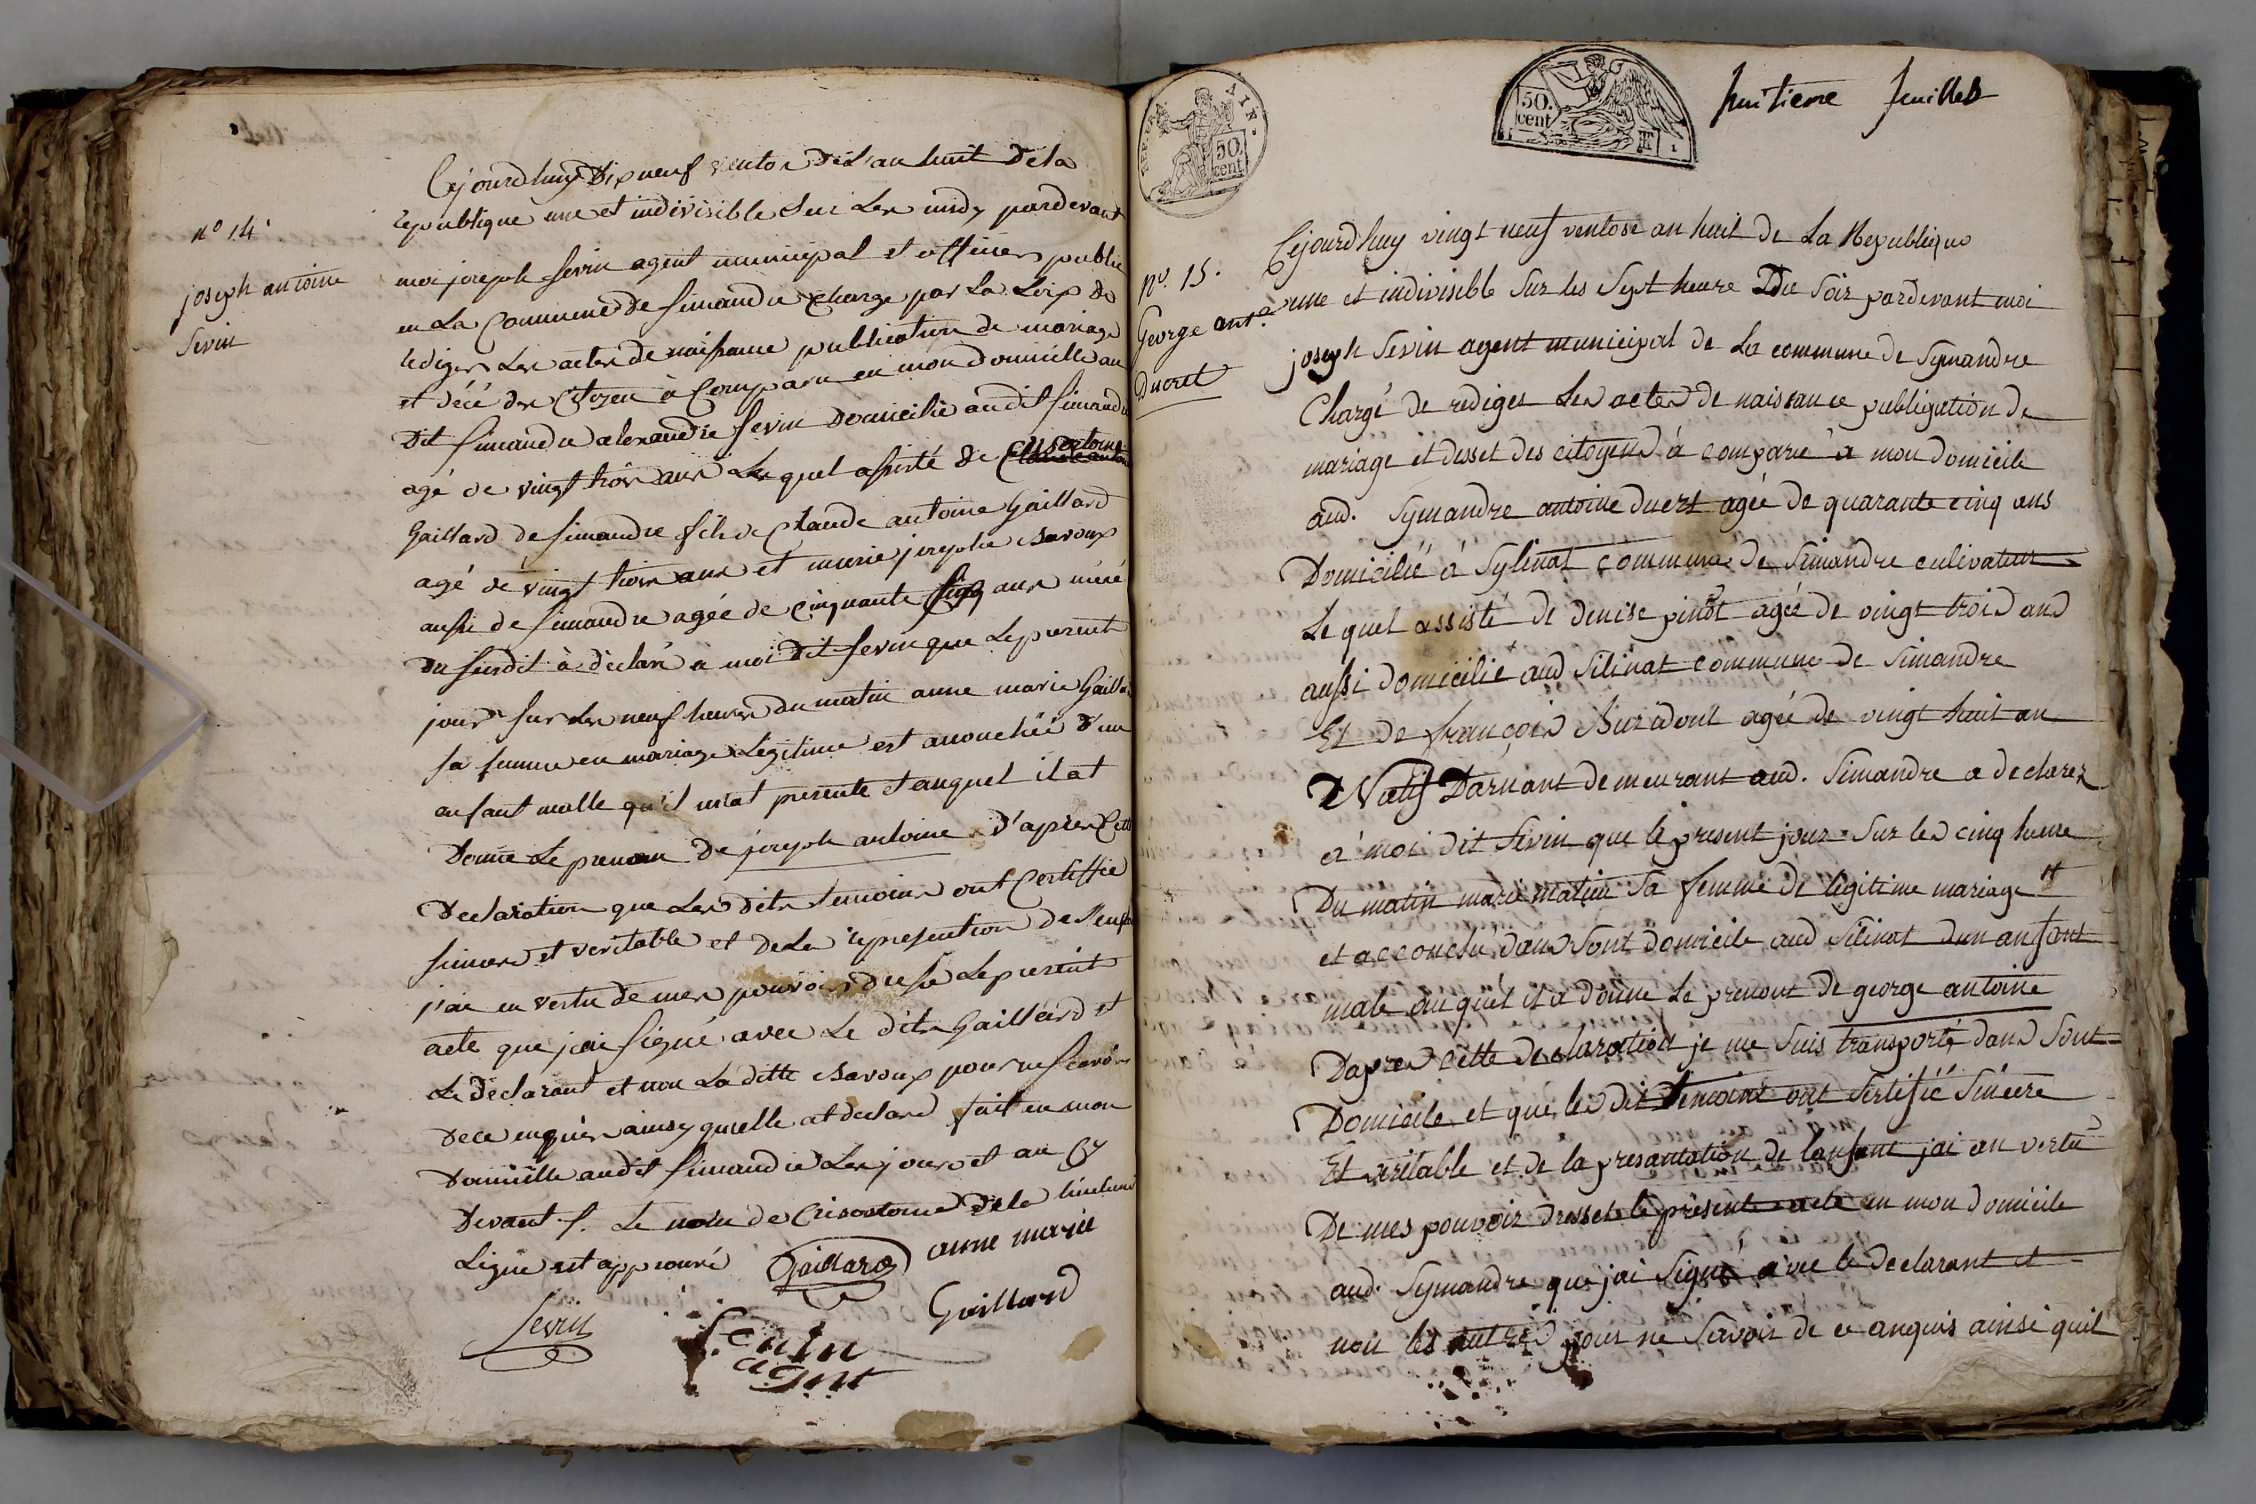 nº 14.
joseph antoine
Sevin
Cejourdhuy Dix neuf ventos De l'an huit De la
republique une et indivisible sur Les midy pardevant
moi joseph sevin agent municipal et officier public
en La Commune De simandre Charge par La Loix De
rediger Les actes de naissance publication de mariage
et décé des Citoyen à Comparu en mon domicille au
Dit simandre alexandre sevin Domicilié audit simandre
agé de vingt trois ans Le quel assisté De Crisostome
Gaillard de simandre fils de Claude antoine Gaillard
agé de vingt trois ans et marie josephe Savoux
aussi de simandre agée de cinquante cinq ans mere
du susdit à déclaré a moi Dit sevin que Le present
jour sur Les neuf heures du matin anne marie Gaillard
sa femme en mariage Legitime est accouchée D'un
enfant malle qu'il m'at presenté et auquel il at
Donné Le prenom De joseph antoine D'apres Cette
Declaration que Les dits temoins ont Certiffié
sincere et veritable et De La represention de l'enfant
j'ai en vertu de mes pouvoirs dressé Le present
acte que j'ai signé avec Le dits Gaillard et
Le Declarant et non La ditte Savoux pour ne scavoir
De ce enquis ainsy qu'elle at declaré fait en mon
Domicille audit simandre Les jours et an Cy
Devant /. Le nom de Crisostome De la
Ligne est approuvé
Gaillard
anne marie
Gaillard
Sevin
Sevin
agent
REP. FRA.
XIN.
50.
cent
50.
cent
huitieme feuillet
nº. 15.
George ant.e
Ducret
Cejourdhuy vingt neuf ventose an huit de La Republique
une et indivisible Sur les Sept heure Du Soir pardevant moi
joseph Sevin agent municipal de La commune de Symandre
Chargé de rediger Les actes de naissance publiqation de
mariage et desset des citoyens à comparu a mon domicile
aud. Symandre antoine ducrt agée de quarante cinq ans
Domicilié à Sylinat commune de Simandre culivateur
Le quel assisté de denise pinot agée de vingt trois ans
aussi domicilié aud Silinat commune de Simandre
Et de françois Buridont agée de vingt huit an
Natif Darnant demeurant aud. Simandre a declarez
à moi dit Sevin que le present jour Sur les cinq heure
Du matin marie matieu Sa femme de légitime mariage
et accouché dans Sont domicile aud Silinat dun anfant
male au quel il a donne Le prenont de george antoine
Dapres cette declaration je me Suis transporté dans Sont
Domicile et que les dit temoint ont Sertifié Sincere
Et veritable et de la presantation de lanfant jai an vertu
De mes pouvoir dresset le présent acte en mon domicile
aud. Symandre que jai Signé avec le declarant et
non les autres pour ne Savoir de ce anquis ainsi quil